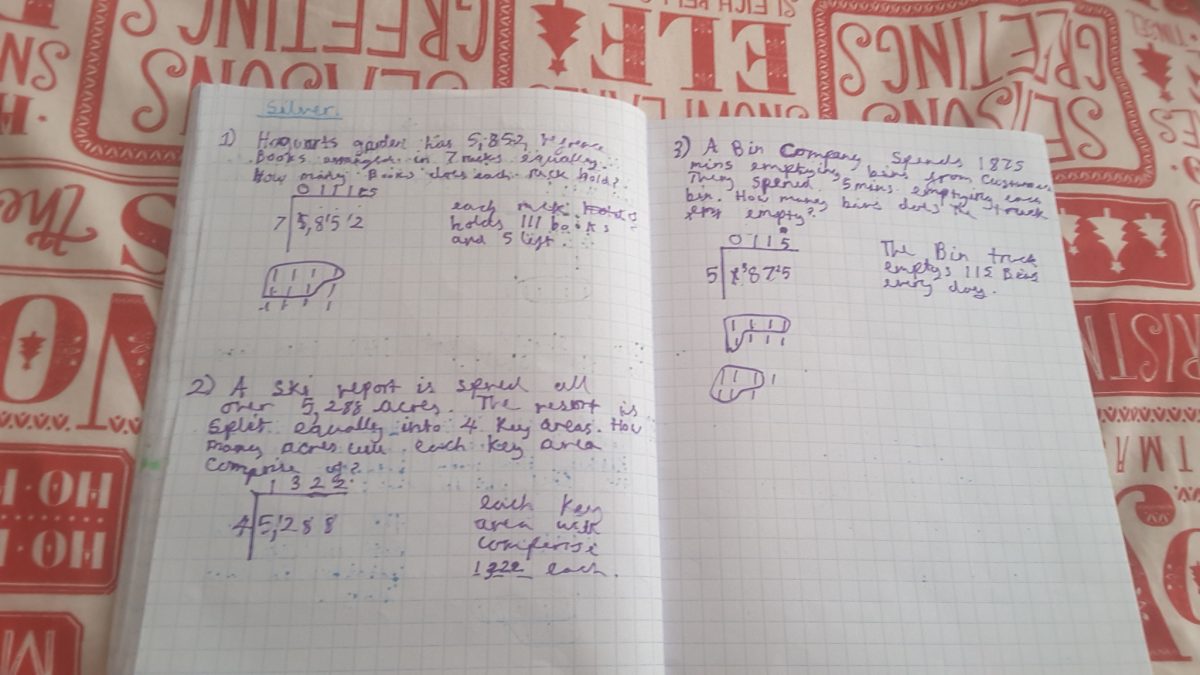 Silver.
1) Hogwarts garden has 5,852
Books arranged in 7 racks equally.
How many Books does each rack hold?
0 1 1 1 r5
7 5,8 5 2
each rack
holds 111 books
and 5 left.
2) A Ski report is spred all
over 5,288 acres. The resort is
Split equally into 4 Key areas. How
many acres will each Key area
Comprise of?
1 3 2 2
4 5,2 8 8
each Key
area with
comperise
1322 each.
3) A Bin Company Spends 1875
mins emptying bins from Customers
They spened 5 mins emptying each
bin. How maney bins does the truck
empty?
0 1 1 5
5 1 8 7 5
The Bin truck
emptys 115 Bins
every day.
SEASONS
GREETINGS
SEASONS
GREETINGS
ELF
The
NO
HO·HO
HO·HO